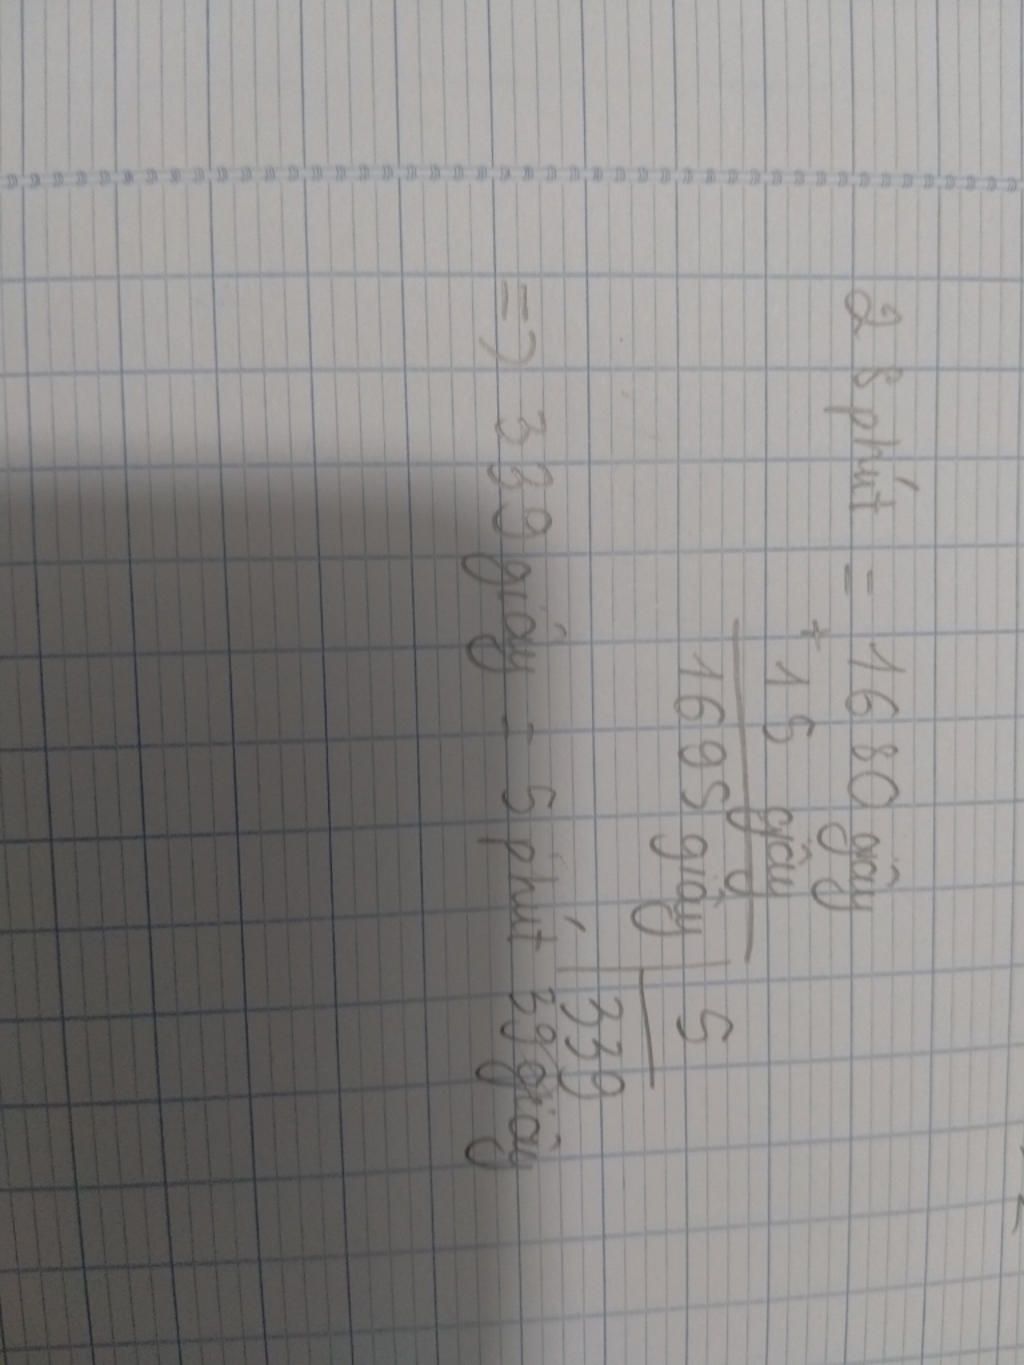 28 phút = 1680 giây
+ 15 giây
1695 giây 5
339
=> 339 giây = 5 phút 39 giây